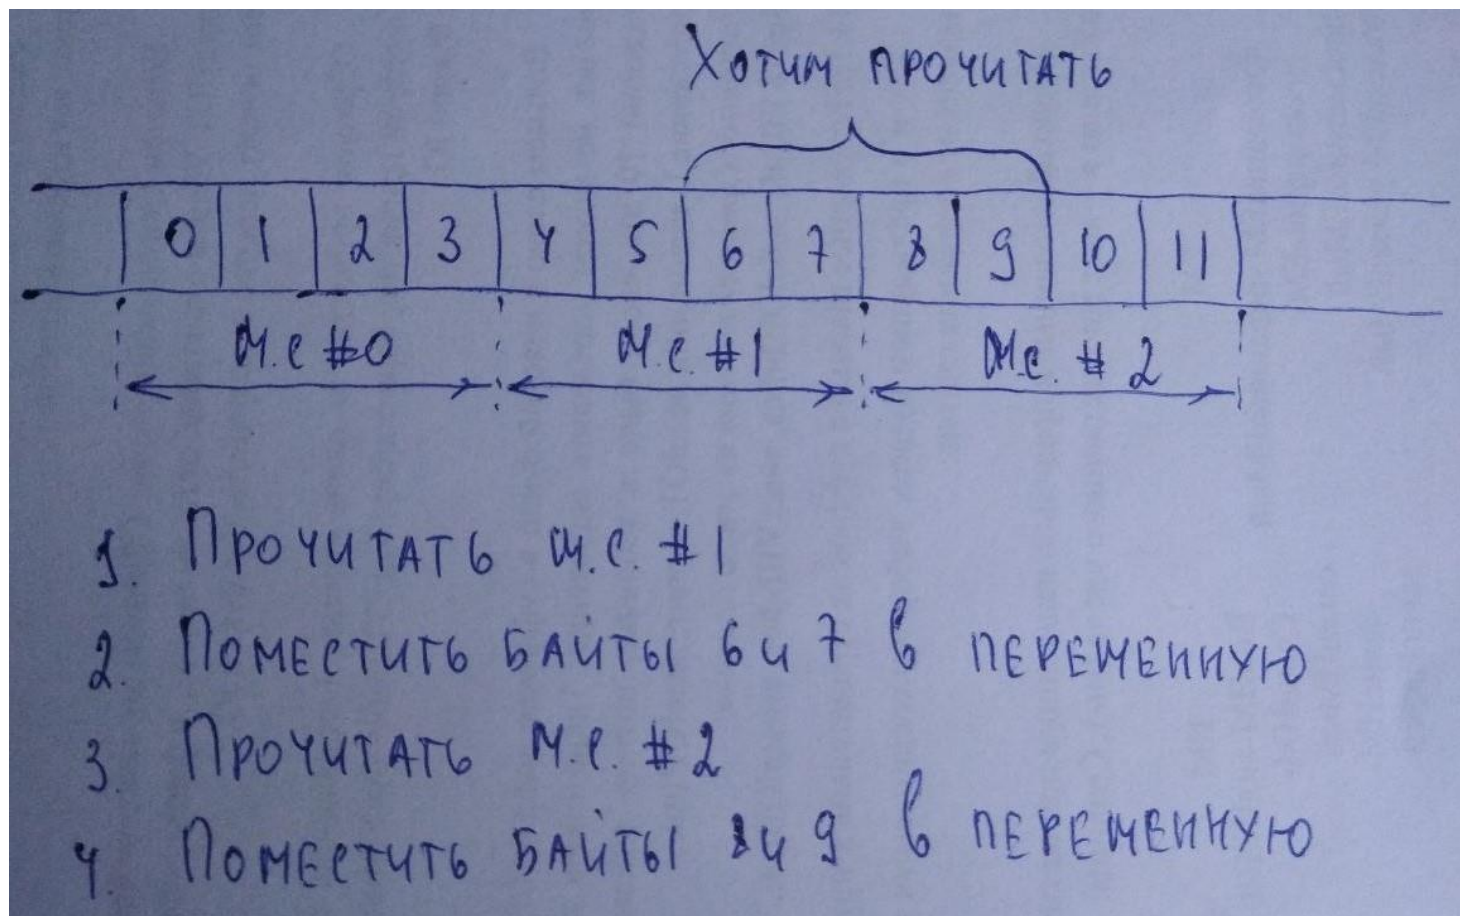 Хотим прочитать
0 1 2 3 4 5 6 7 8 9 10 11
М.С #0 М.С. #1 М.С. #2
1. Прочитать М.С. #1
2. Поместить байты 6 и 7 в переменную
3. Прочитать М.С. #2
4. Поместить байты 8 и 9 в переменную